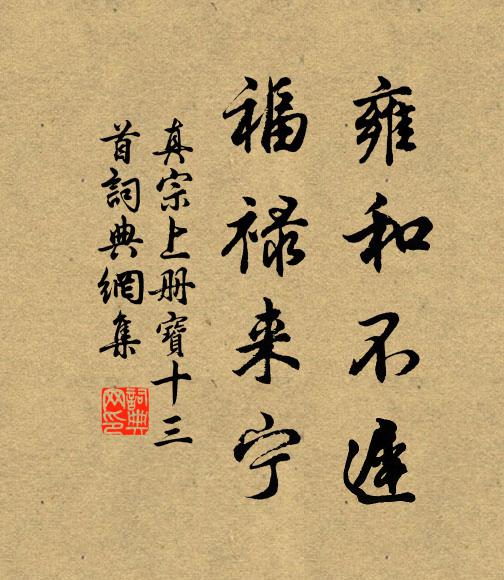 雍和不
福禄来宁
真宗上册寶十三
首詞典網集
詞典
网印